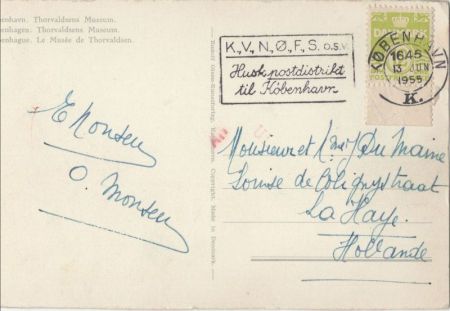 enhavn. Thorvaldsens Museum.
enhagen. Thorvaldsens Museum.
enhague. Le Musée de Thorvaldsen.
K., V., N., Ø., F., S. O.S.V.
Husk postdistrikt
til København
KØBENHAVN
1645
13 JUN
1955
K.
E Monsen
O. Monsen
Monsieur et Mme Du Maine
Louise de Colignystraat
La Haye.
Hollande